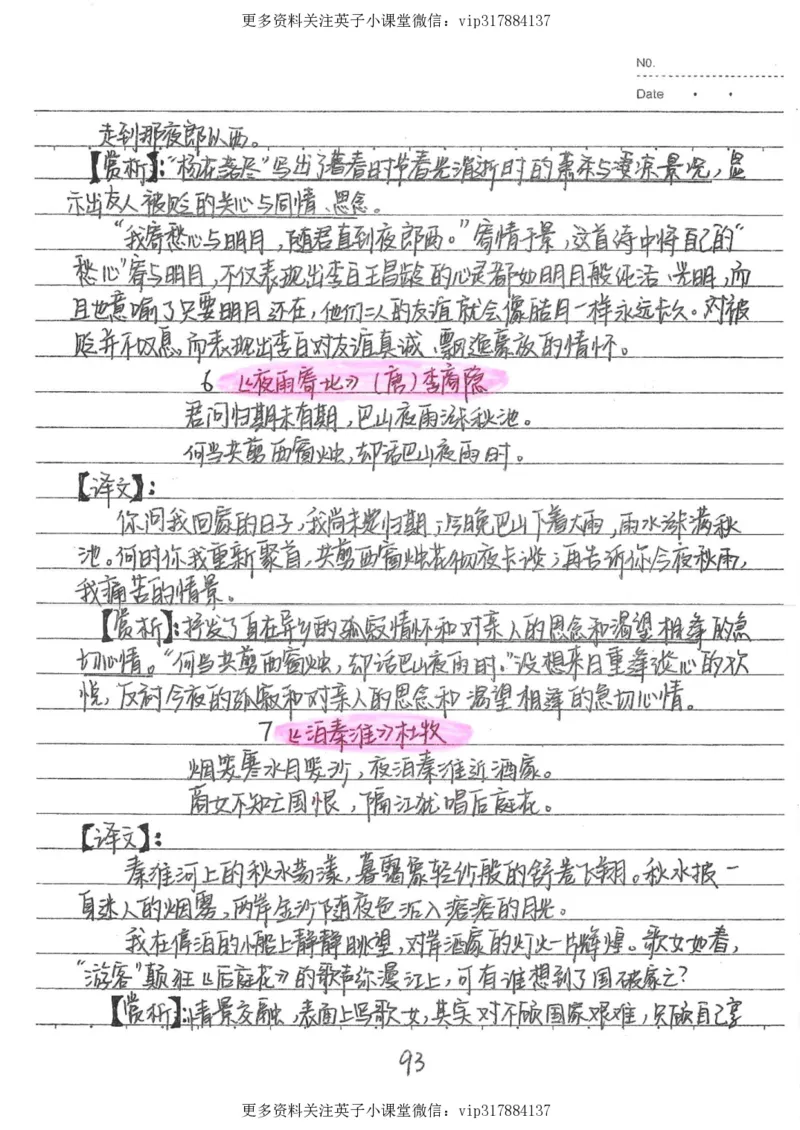 更多资料关注英子小课堂微信：vip317884137
NO.
Date
走到那夜郎以西。
【赏析】："杨花落尽"写出了暮春时节春光消逝时的萧杀与凄凉景况，显
示出友人被贬的关心与同情、思念。
"我寄愁心与明月，随君直到夜郎西。"寄情于景，这首诗中将自己的"
愁心"寄与明月，不仅表现出李白王昌龄的心灵都如明月般纯洁、光明，而
且也意喻了只要明月还在，他们二人的友谊就会像皓月一样永远长久。对被
贬并不叹息。而表现出李白对友谊真诚、飘逸豪放的情怀。
6 《夜雨寄北》（唐）李商隐
君问归期未有期，巴山夜雨涨秋池。
何当共剪西窗烛，却话巴山夜雨时。
【译文】：
你问我回家的日子，我尚未定归期；今晚巴山下着大雨，雨水涨满秋
池。何时你我重新聚首，共剪西窗烛花彻夜长谈；再告诉你今夜秋雨，
我痛苦的情景。
【赏析】：抒发了身在异乡的孤寂情怀和对亲人的思念和渴望相逢的急
切心情。"何当共剪西窗烛，却话巴山夜雨时。"设想来日重逢谈心的欢
悦，反衬今夜的孤寂和对亲人的思念和渴望相逢的急切心情。
7 《泊秦淮》杜牧
烟笼寒水月笼沙，夜泊秦淮近酒家。
商女不知亡国恨，隔江犹唱后庭花。
【译文】：
秦淮河上的秋水荡漾，暮霭象轻纱般的舒卷飞翔。秋水披一
身迷人的烟雾，两岸金沙随夜色沾入痞痞的月光。
我在停泊的小船上静静眺望，对岸酒家的灯火一片辉煌。歌女如春，
"游客"颠狂《后庭花》的歌声弥漫江上，可有谁想到了国破家亡？
【赏析】：情景交融，表面上写歌女，其实对不顾国家艰难，只顾自己享
93
更多资料关注英子小课堂微信：vip317884137